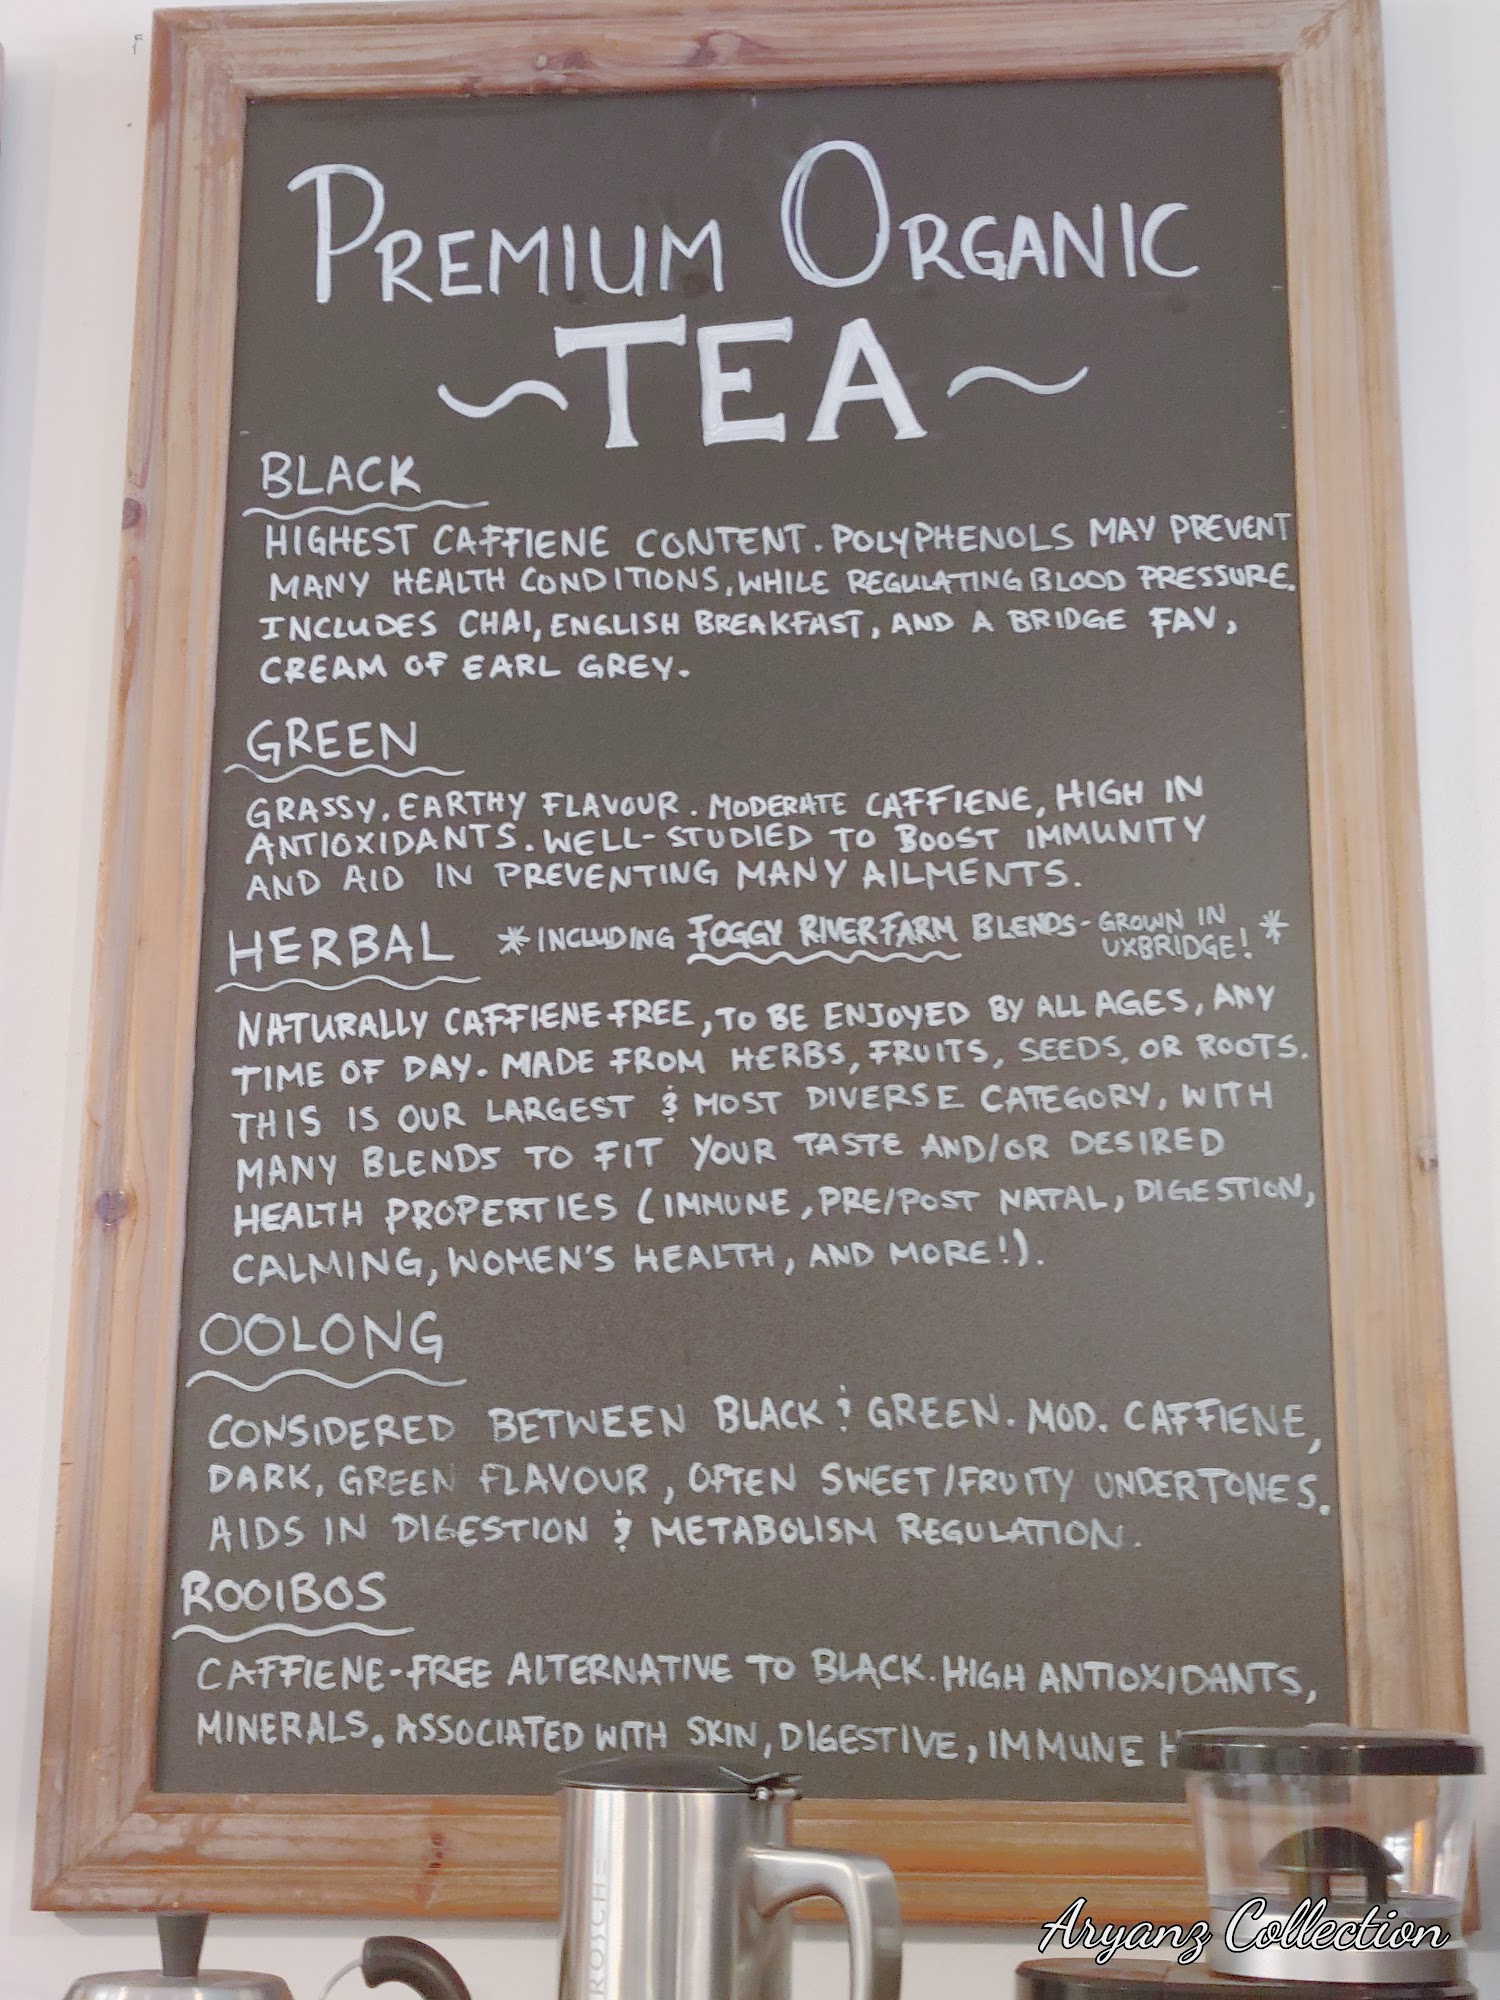 PREMIUM ORGANIC
~TEA~
BLACK
HIGHEST CAFFIENE CONTENT. POLYPHENOLS MAY PREVENT
MANY HEALTH CONDITIONS, WHILE REGULATING BLOOD PRESSURE.
INCLUDES CHAI, ENGLISH BREAKFAST, AND A BRIDGE FAV,
CREAM OF EARL GREY.
GREEN
GRASSY, EARTHY FLAVOUR. MODERATE CAFFIENE, HIGH IN
ANTIOXIDANTS. WELL-STUDIED TO BOOST IMMUNITY
AND AID IN PREVENTING MANY AILMENTS.
HERBAL *INCLUDING FOGGY RIVER FARM BLENDS - GROWN IN
UXBRIDGE! *
NATURALLY CAFFIENE-FREE, TO BE ENJOYED BY ALL AGES, ANY
TIME OF DAY. MADE FROM HERBS, FRUITS, SEEDS, OR ROOTS.
THIS IS OUR LARGEST & MOST DIVERSE CATEGORY, WITH
MANY BLENDS TO FIT YOUR TASTE AND/OR DESIRED
HEALTH PROPERTIES (IMMUNE, PRE/POST NATAL, DIGESTION,
CALMING, WOMEN'S HEALTH, AND MORE!).
OOLONG
CONSIDERED BETWEEN BLACK & GREEN. MOD. CAFFIENE,
DARK, GREEN FLAVOUR, OFTEN SWEET/FRUITY UNDERTONES.
AIDS IN DIGESTION & METABOLISM REGULATION.
ROOIBOS
CAFFIENE-FREE ALTERNATIVE TO BLACK. HIGH ANTIOXIDANTS,
MINERALS. ASSOCIATED WITH SKIN, DIGESTIVE, IMMUNE
Aryanz Collection